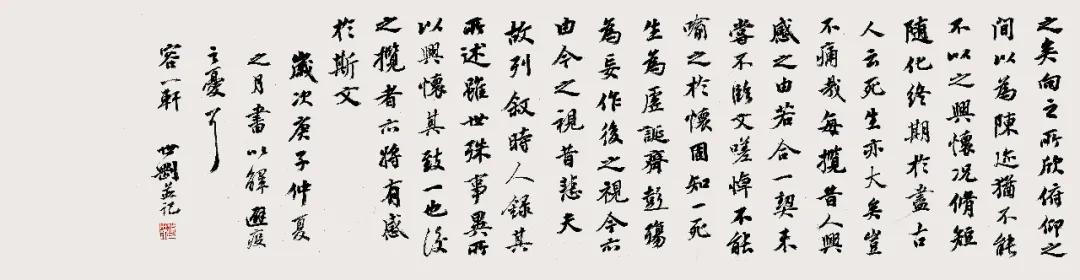 之矣向之所欣俯仰之
間以為陳迹猶不能
不以之興懷况脩短
隨化終期於盡古
人云死生亦大矣豈
不痛哉每攬昔人興
感之由若合一契未
嘗不臨文嗟悼不能
喻之於懷固知一死
生為虛誕齊彭殤
為妄作後之視今亦
由今之視昔悲夫
故列敘時人錄其
所述雖世殊事異所
以興懷其致一也後
之攬者亦將有感
於斯文
歲次庚子仲夏
之月書以解避疫
之憂耳
容一軒 世劉並记